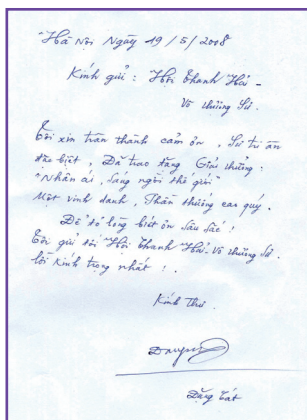 Hà Nội Ngày 19/5/2008
Kính gửi : Hội Thanh Hải -
Vô thượng Sư.
Tôi xin trân thành cảm ơn, Sự tri ân
đặc biệt, Đã trao tặng Giải thưởng.
"Nhân ái, Sáng ngời thế giới"
Một vinh danh, Phần thưởng cao quý.
Để tỏ lòng biết ơn sâu sắc!
Tôi gửi tới Hội Thanh Hải - Vô thượng Sư.
lời kính trọng nhất!.
Kính Thư
Đặng Tất